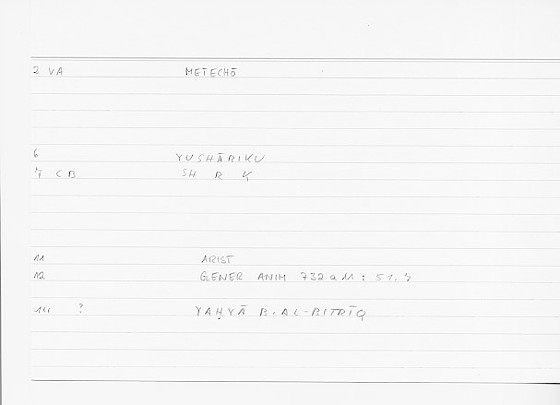 2 VA METECHŌ
6 YUSHĀRIKU
7 CB SH R K
11 ARIST
12 GENER ANIM 732a11 : 51,7
14 ? YAḤYĀ B. AL-BITRĪQ